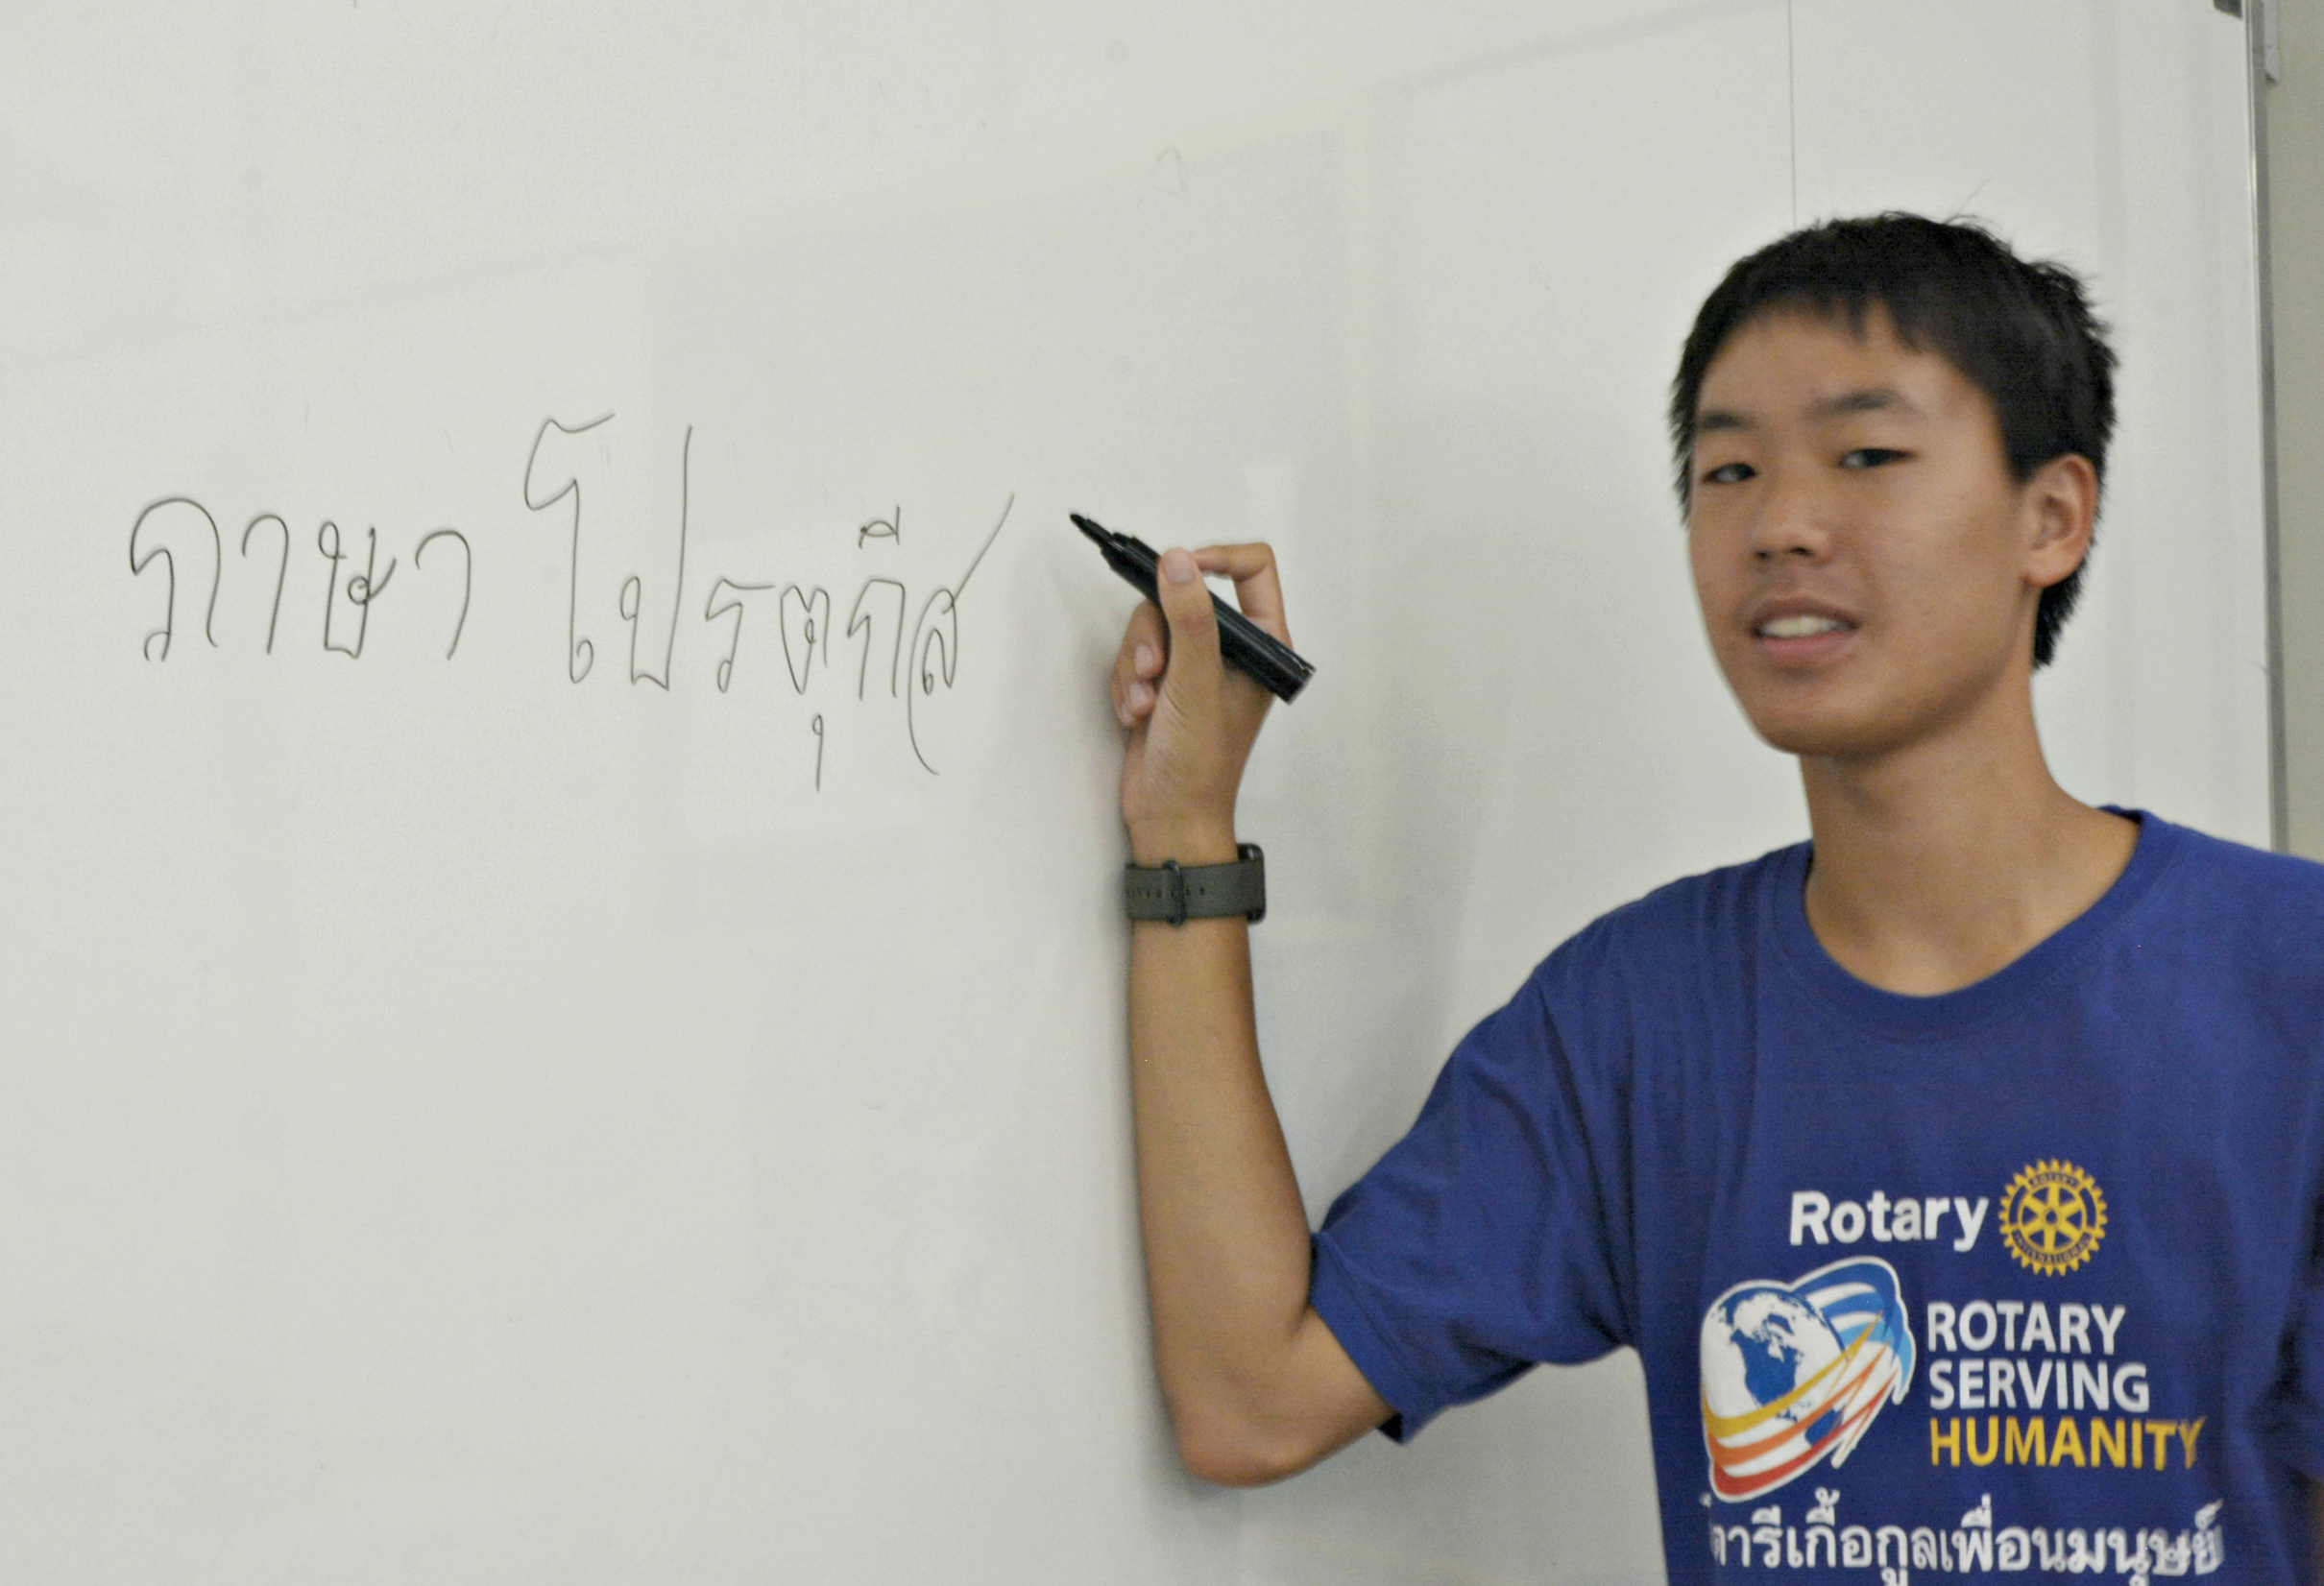 ภาษา โปรตุกีส
Rotary
ROTARY
SERVING
HUMANITY
โรตารีเกื้อกูลเพื่อนมนุษย์